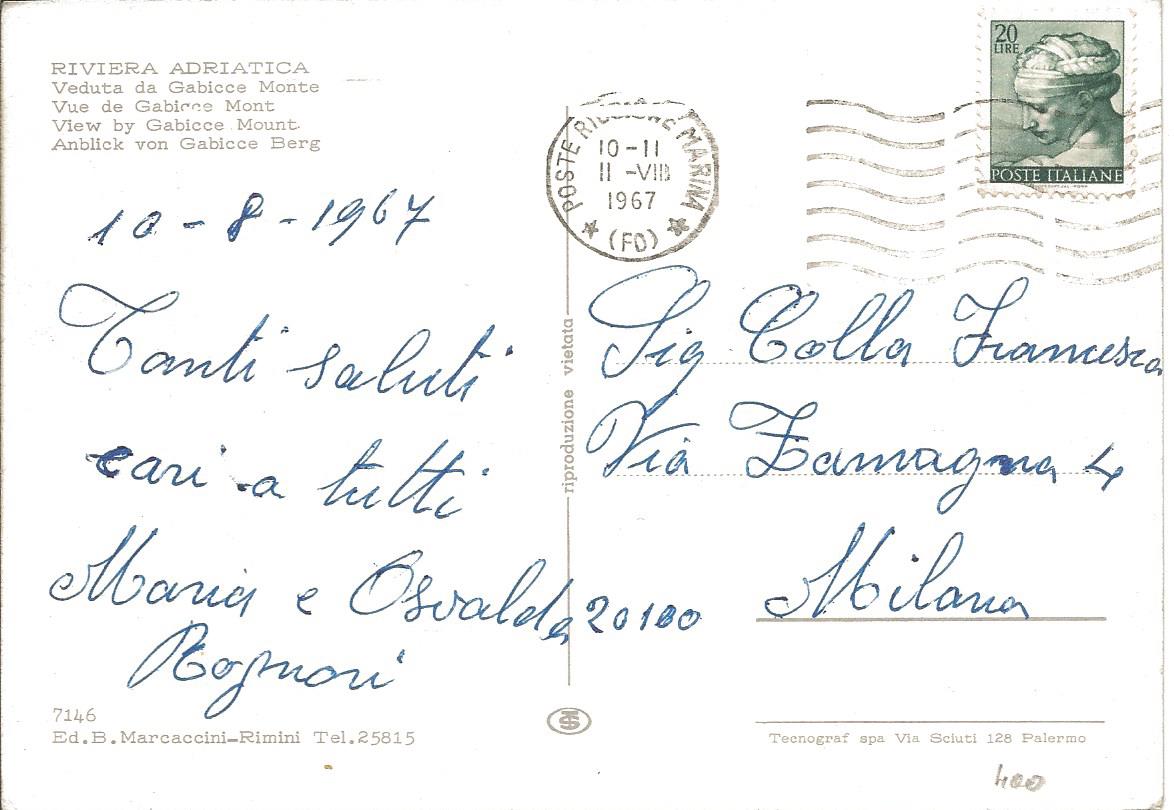 RIVIERA ADRIATICA
Veduta da Gabicce Monte
Vue de Gabicce Mont
View by Gabicce Mount.
Anblick von Gabicce Berg
10 - 8 - 1967
Tanti saluti
cari a tutti
Maria e Osvaldo
Rognoni
7146
Ed.B.Marcaccini-Rimini Tel.25815
riproduzione vietata
POSTE RICCIONE MARINA
10-11
11 -VIII
1967
(FO)
20
LIRE
POSTE ITALIANE
Sig Colla Francesco
Via Zamagna 4
20100 Milano
Tecnograf spa Via Sciuti 128 Palermo
400